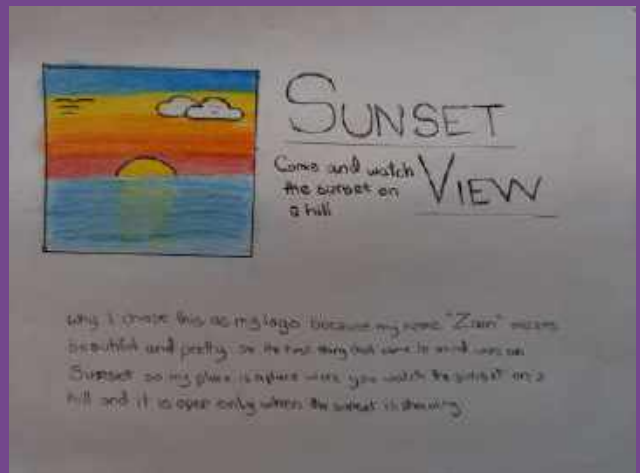 SUNSET
VIEW
Come and watch
the sunset on
a hill
why I chose this as my logo because my name "Zain" means
beautiful and pretty so the first thing that came to mind was an
Sunset so my place is a place were you watch the sunset on a
hill and it is open only when the sunset is showing